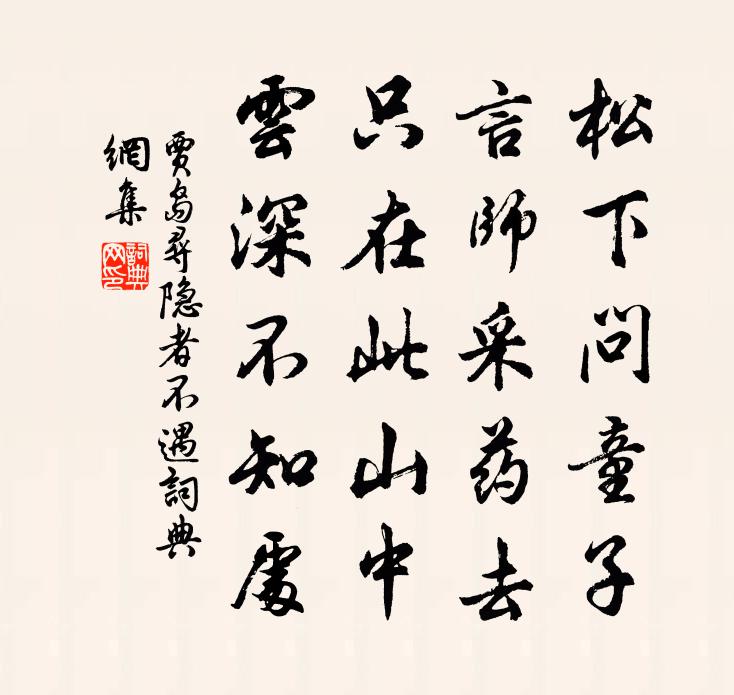 松下問童子
言師采药去
只在此山中
雲深不知處
賈島尋隐者不遇詞典
網集
詞典网印